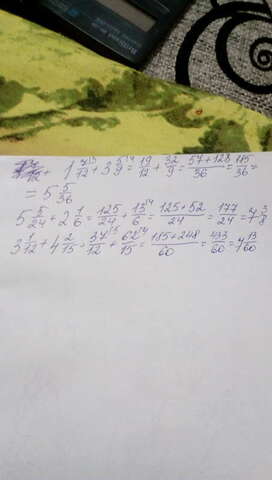 1 7/12 + 3 5/9 = 19/12 + 32/9 = (57+128)/36 = 185/36 =
= 5 5/36
5 5/24 + 2 1/6 = 125/24 + 13/6 = (125+52)/24 = 177/24 = 7 3/8
3 1/12 + 4 2/15 = 37/12 + 62/15 = (185+248)/60 = 433/60 = 7 13/60